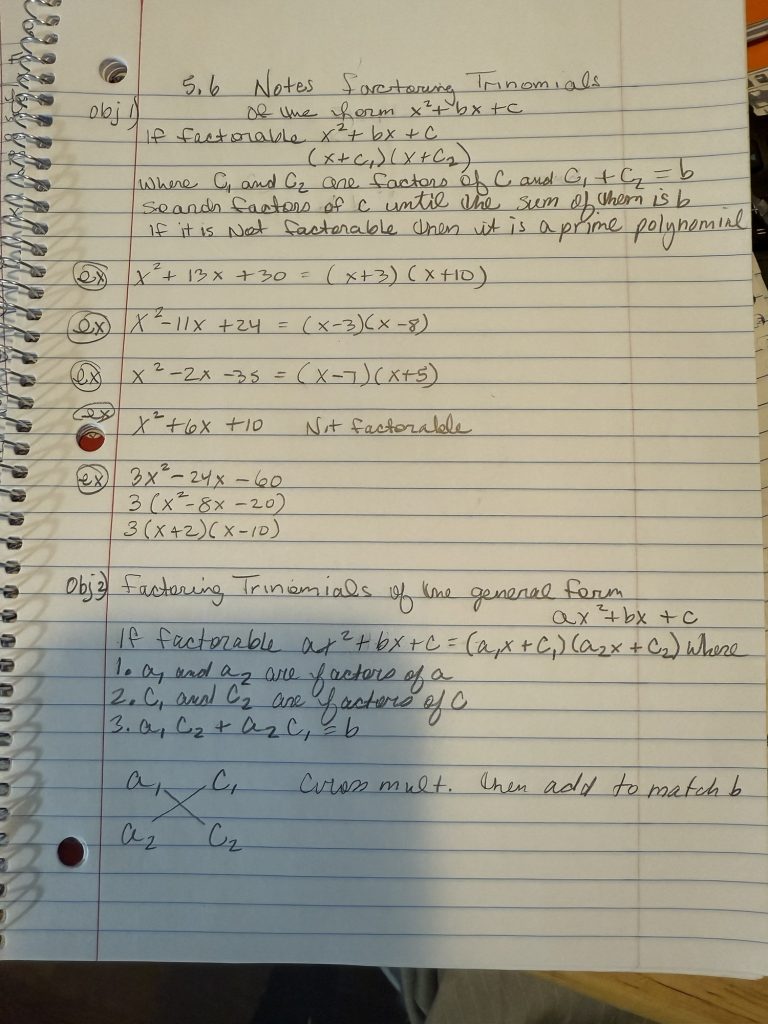 5.6 Notes Factoring Trinomials
Obj 1) Of the form x²+bx+c
If factorable x²+bx+c
(x+c₁)(x+c₂)
where C₁ and C₂ are factors of C and C₁+C₂=b
search factors of c until the sum of them is b
If it is Not factorable then it is a prime polynomial
ex x²+13x+30 = (x+3)(x+10)
ex x²-11x+24 = (x-3)(x-8)
ex x²-2x-35 = (x-7)(x+5)
ex x²+6x+10 Not factorable
ex 3x²-24x-60
3(x²-8x-20)
3(x+2)(x-10)
Obj 2) Factoring Trinomials of the general form
ax²+bx+c
If factorable ax²+bx+c=(a₁x+c₁)(a₂x+c₂) where
1. a₁ and a₂ are factors of a
2. C₁ and C₂ are factors of C
3. a₁C₂+a₂C₁=b
a₁ C₁ Cross mult. then add to match b
a₂ C₂